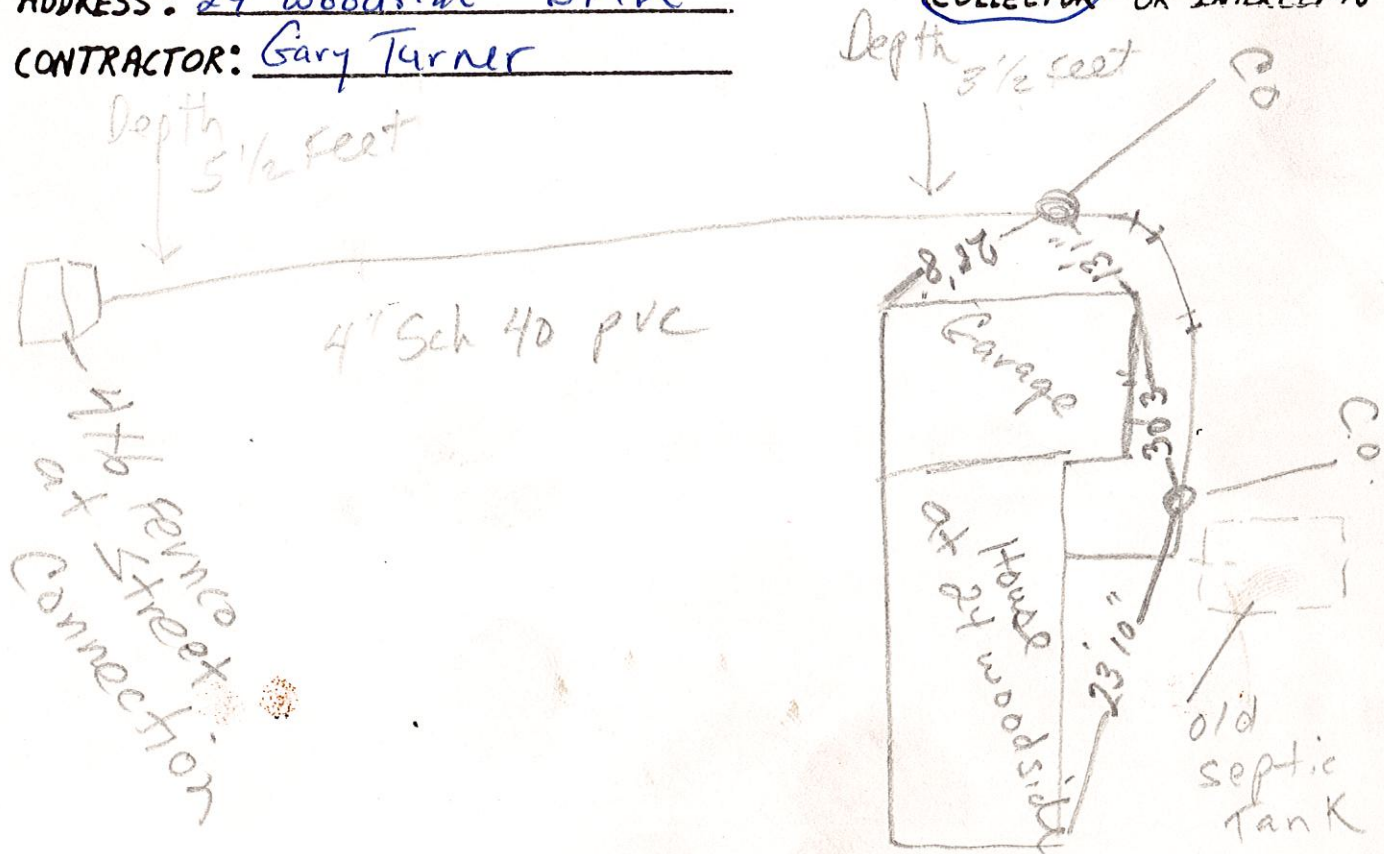 ADDRESS: 24 Woodside Drive
COLLECTOR OR INTERCEPTO
CONTRACTOR: Gary Turner
Depth
5 1/2 Feet
Depth
3 1/2 Feet
C.O.
13'
Garage
4" Sch 40 pvc
30' 3
C.O.
House
at 24 woodside
23' 10"
old
septic
Tank
Fernco
at Street
Connection